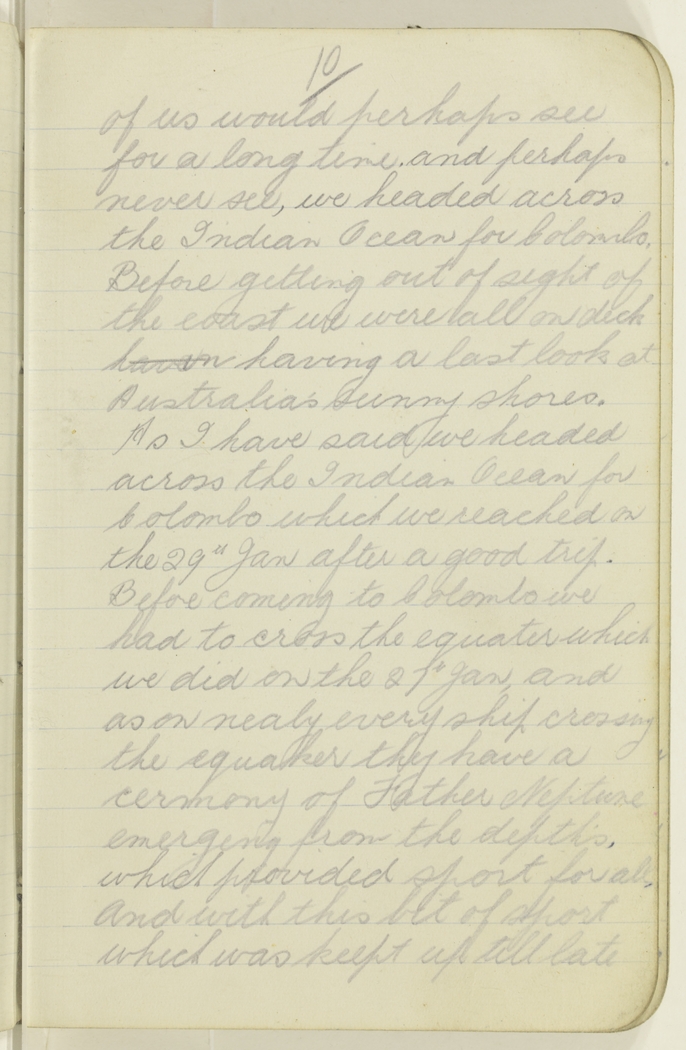 10
of us would perhaps see
for a long time. and perhaps
never see, we headed across
the Indian Ocean for Colombo.
Before getting out of sight of
the coast we were all on deck
having a last look at
Australia's sunny shores.
As I have said we headed
across the Indian Ocean for
Colombo which we reached on
the 29th Jan after a good trip.
Befoe coming to Colombo we
had to cross the equater which
we did on the 27th Jan, and
as on nealy every ship crossing
the equaker thy have a
cermony of Father Neptune
emergeng from the depths,
which provided sport for all.
And with this bit of sport
which was keept up till late